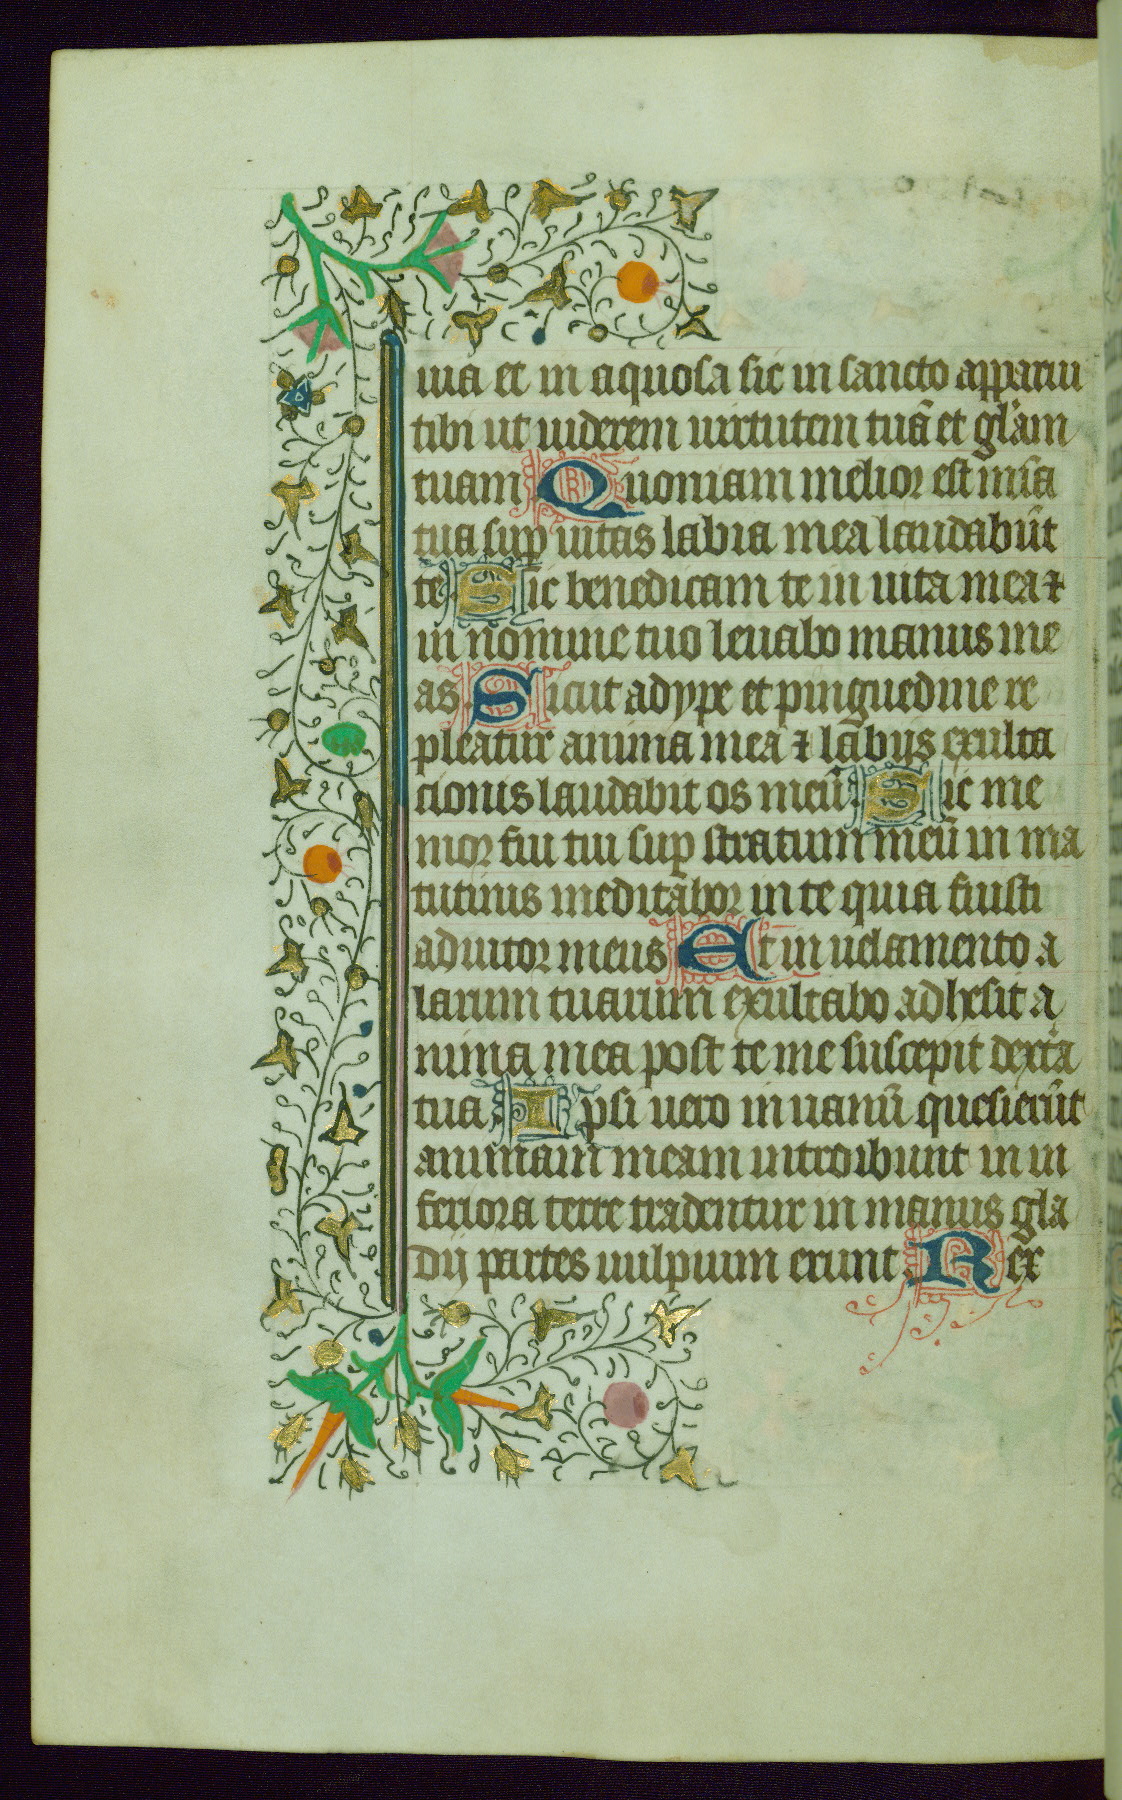 uia et in aquosa sic in sancto apparui
tibi ut uiderem uirtutem tuā et glām
tuam Quoniam melior est mīa
tua sup uitas labia mea laudabūt
te Sic benedicam te in uita mea ⁊
in nomine tuo leuabo manus me
as Sicut adype et pinguedine re
pleatur anima mea ⁊ labijs exulta
cionis laudabit os meū Sic me
mor fui tui sup stratum meū in ma
tutinis meditabor in te quia fuisti
adiutor meus Et in uelamento a
larum tuarum exultabo adhesit a
nima mea post te me suscepit dextā
tua Ipsi uero in uanū quesierūt
animam meam introibunt in in
feriora terre tradentur in manus gla
dij partes uulpium erunt Rex